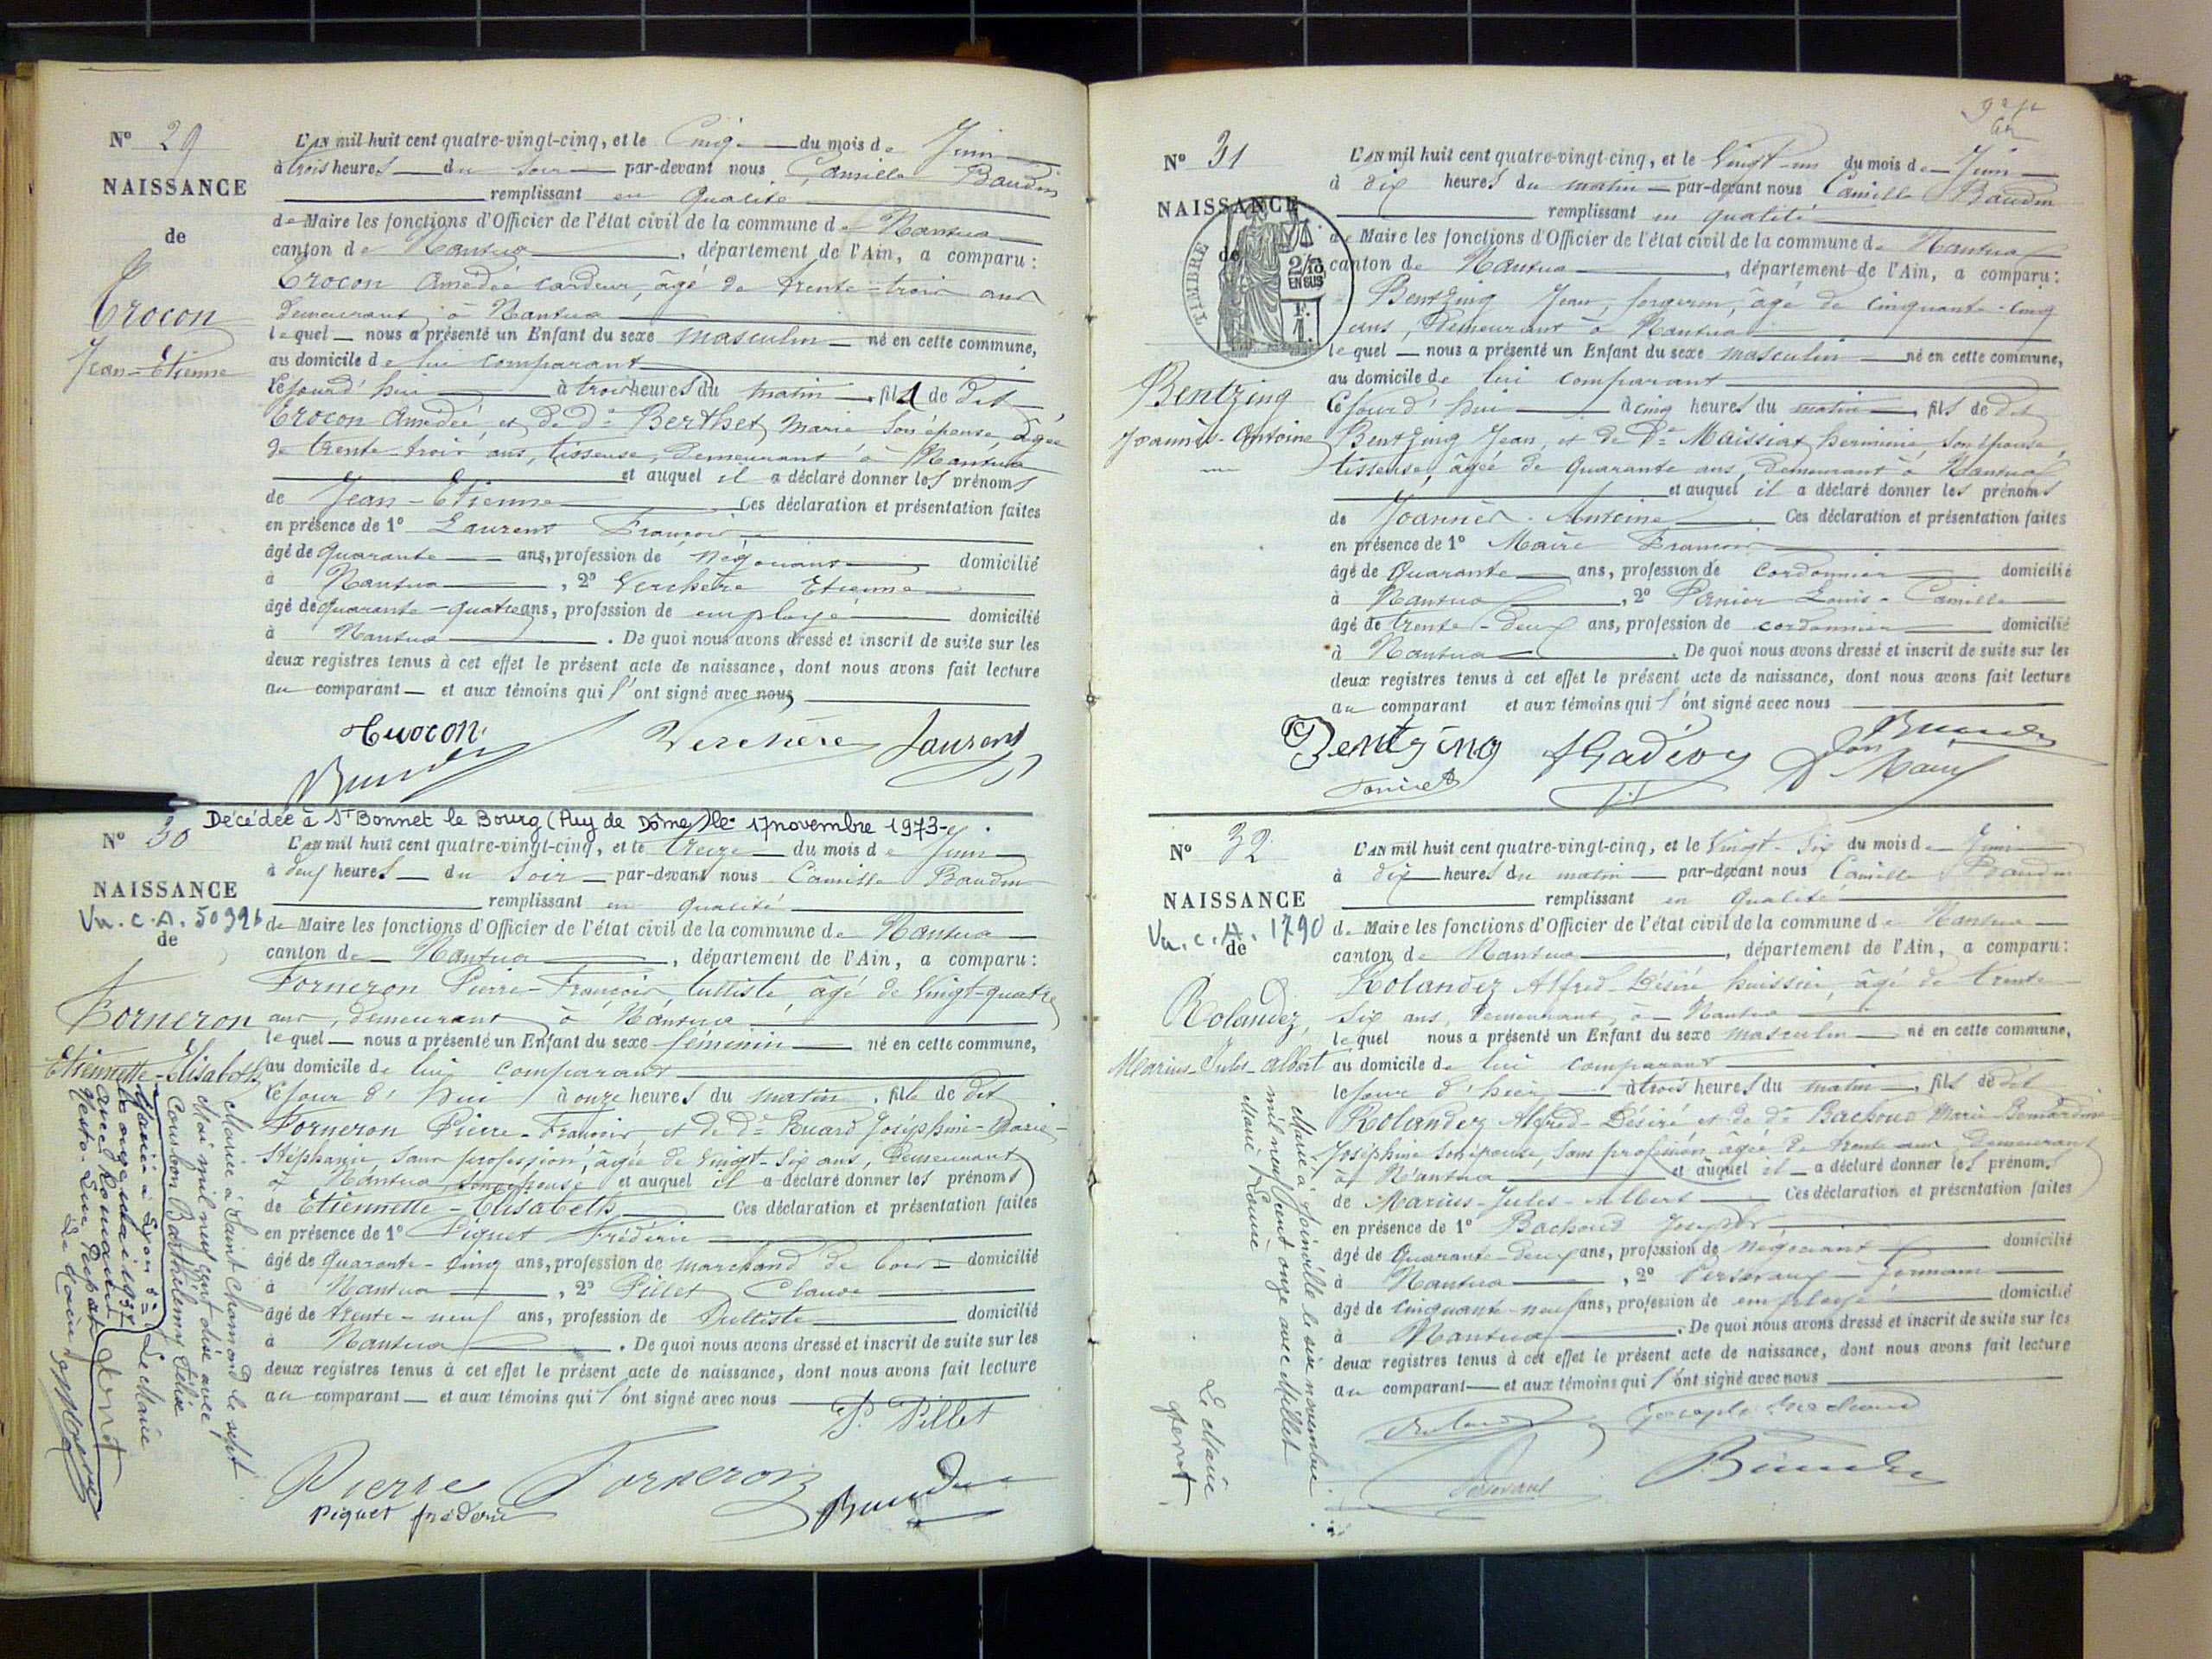 N° 29
NAISSANCE
de
Crocon
Jean-Etienne
L'AN mil huit cent quatre-vingt-cinq, et le Cinq du mois de Juin
à trois heures du soir par-devant nous Camille Baudin
remplissant en qualité
de Maire les fonctions d'Officier de l'état civil de la commune de Nantua
canton de Nantua, département de l'Ain, a comparu :
Crocon Amédée cardeur, âgé de trente-trois ans
demeurant à Nantua
lequel nous a présenté un Enfant du sexe masculin né en cette commune,
au domicile de lui comparant
ce jourd'hui à trois heures du matin, fils de dit
Crocon Amédée, et de De Berthet Marie son épouse, âgée
de trente-trois ans, tisseuse, demeurant à Nantua
et auquel il a déclaré donner les prénoms
de Jean-Etienne Ces déclaration et présentation faites
en présence de 1° Laurent François
âgé de quarante ans, profession de négociant domicilié
à Nantua, 2° Verchère Etienne
âgé de quarante-quatre ans, profession de employé domicilié
à Nantua. De quoi nous avons dressé et inscrit de suite sur les
deux registres tenus à cet effet le présent acte de naissance, dont nous avons fait lecture
au comparant et aux témoins qui l'ont signé avec nous
Crocon Verchère Laurent
Décédée à St Bonnet le Bourg (Puy de Dôme) le 17 novembre 1973-
N° 30
NAISSANCE
Vu. C.A. 50396
de
Forneron
Etiennette-Elisabeth
L'AN mil huit cent quatre-vingt-cinq, et le treize du mois de Juin
à deux heures du soir par-devant nous Camille Baudin
remplissant en qualité
de Maire les fonctions d'Officier de l'état civil de la commune de Nantua
canton de Nantua, département de l'Ain, a comparu :
Forneron Pierre-François, tulliste, âgé de vingt-quatre
ans, demeurant à Nantua
lequel nous a présenté un Enfant du sexe féminin né en cette commune,
au domicile de lui comparant
ce jour d'hui à onze heures du matin, fille de dit
Forneron Pierre-François et de De Ruard Joséphine-Marie-
Stéphanie sans profession, âgée de vingt-six ans, demeurant
à Nantua, son épouse et auquel il a déclaré donner les prénoms
de Etiennette-Elisabeth Ces déclaration et présentation faites
en présence de 1° Piquet Frédéric
âgé de quarante-cinq ans, profession de marchand de bois domicilié
à Nantua, 2° Pillet Claude
âgé de trente-neuf ans, profession de tulliste domicilié
à Nantua. De quoi nous avons dressé et inscrit de suite sur les
deux registres tenus à cet effet le présent acte de naissance, dont nous avons fait lecture
au comparant et aux témoins qui l'ont signé avec nous
P. Pillet
Pierre Forneron
Piquet frédéric Baudin
Mariée à Saint Chamond le sept
Mai mil neuf cent dix avec
Courbon Barthélemy Elisé
Le Maire
Mariée à Lyon 5e
le onze mai 1937
avec Romand
Le Maire
N° 31
NAISSANCE
de
TIMBRE
2/10 EN SUS
1 F.
Bentzing
Joannès-Antoine
L'AN mil huit cent quatre-vingt-cinq, et le vingt-un du mois de Juin
à dix heures du matin par-devant nous Camille Baudin
remplissant en qualité
de Maire les fonctions d'Officier de l'état civil de la commune de Nantua
canton de Nantua, département de l'Ain, a comparu :
Bentzing Jean, forgeron, âgé de cinquante-cinq
ans, demeurant à Nantua
lequel nous a présenté un Enfant du sexe masculin né en cette commune,
au domicile de lui comparant
ce jourd'hui à cinq heures du matin, fils de dit
Bentzing Jean, et de De Maissiat herminie, son épouse,
tisseuse, âgée de quarante ans, demeurant à Nantua
et auquel il a déclaré donner les prénoms
de Joannès-Antoine Ces déclaration et présentation faites
en présence de 1° Maire François
âgé de quarante ans, profession de cordonnier domicilié
à Nantua, 2° Louis-Camille
âgé de trente-deux ans, profession de cordonnier domicilié
à Nantua. De quoi nous avons dressé et inscrit de suite sur les
deux registres tenus à cet effet le présent acte de naissance, dont nous avons fait lecture
au comparant et aux témoins qui l'ont signé avec nous
Bentzing
N° 32
NAISSANCE
Vu. C.A. 1790
de
Rolandez
Marius-Jules-Albert
L'AN mil huit cent quatre-vingt-cinq, et le vingt-six du mois de Juin
à dix heures du matin par-devant nous Camille Baudin
remplissant en qualité
de Maire les fonctions d'Officier de l'état civil de la commune de Nantua
canton de Nantua, département de l'Ain, a comparu :
Rolandez Alfred-Désiré huissier, âgé de trente
six ans, demeurant à Nantua
lequel nous a présenté un Enfant du sexe masculin né en cette commune,
au domicile de lui comparant
le jour d'hier à trois heures du matin, fils de dit
Rolandez Alfred-Désiré et de De Bachoud Marie Bernardine
Joséphine son épouse, sans profession, âgée de trente ans demeurant
à Nantua et auquel il a déclaré donner les prénoms
de Marius-Jules-Albert Ces déclaration et présentation faites
en présence de 1° Bachoud Joseph
âgé de quarante-deux ans, profession de négociant domicilié
à Nantua, 2°
âgé de cinquante-neuf ans, profession de employé domicilié
à Nantua. De quoi nous avons dressé et inscrit de suite sur les
deux registres tenus à cet effet le présent acte de naissance, dont nous avons fait lecture
au comparant et aux témoins qui l'ont signé avec nous
Marié à Joinville le seize novembre
mil neuf cent onze avec Millet
Marie Louise
Le Maire